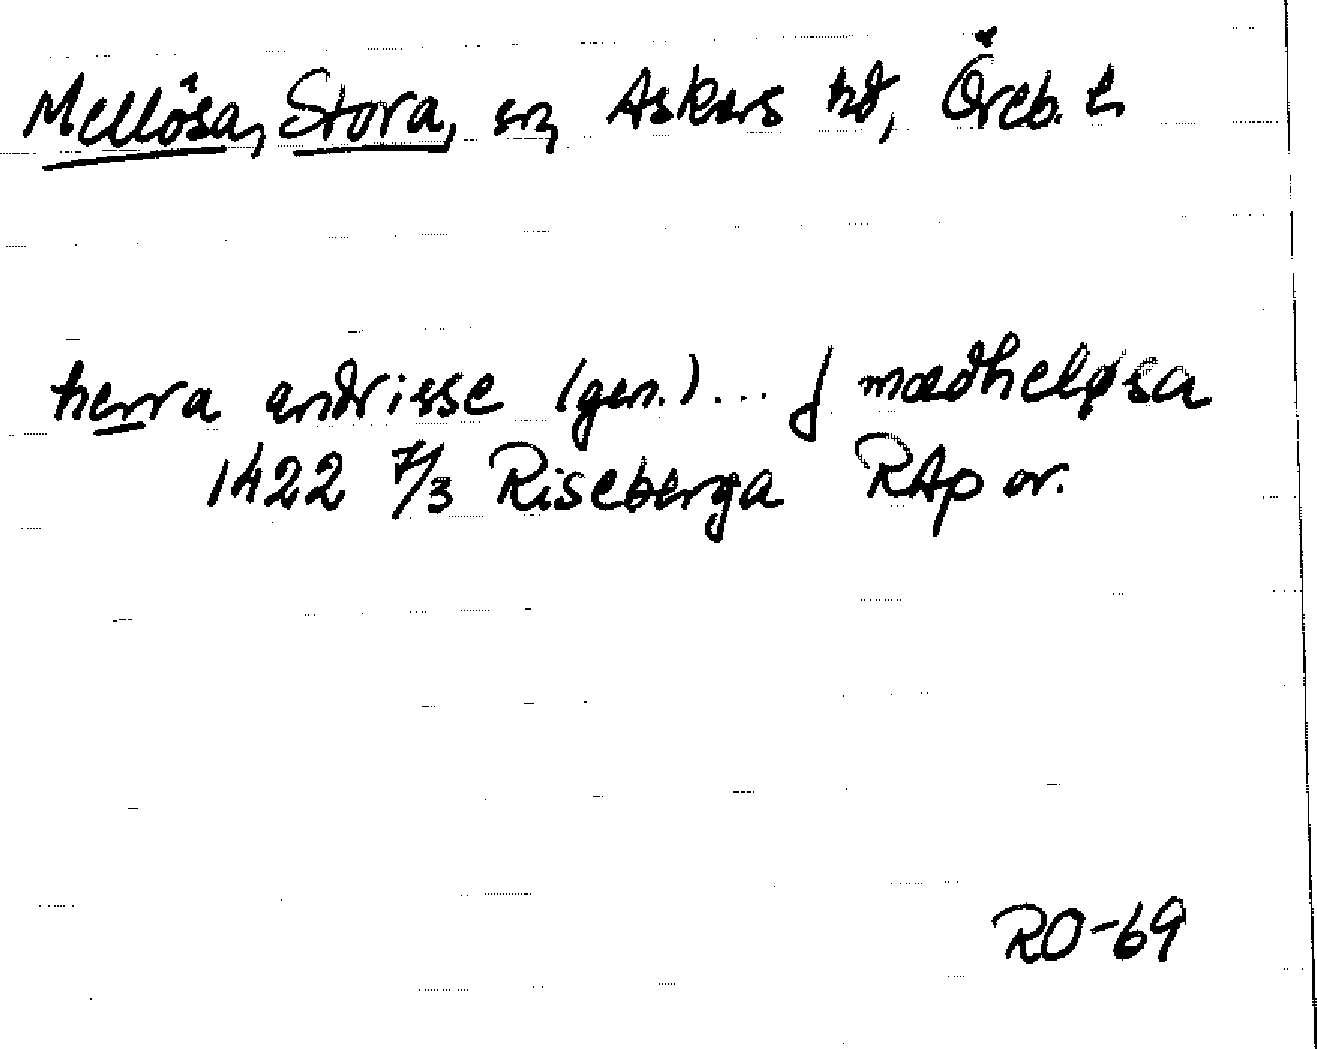 Mellösa, Stora, sn, Askers hd, Öreb. l.
herra andrisse (gen.)... j mædheløsa
1422 7/3 Riseberga RAp or.
RO-69